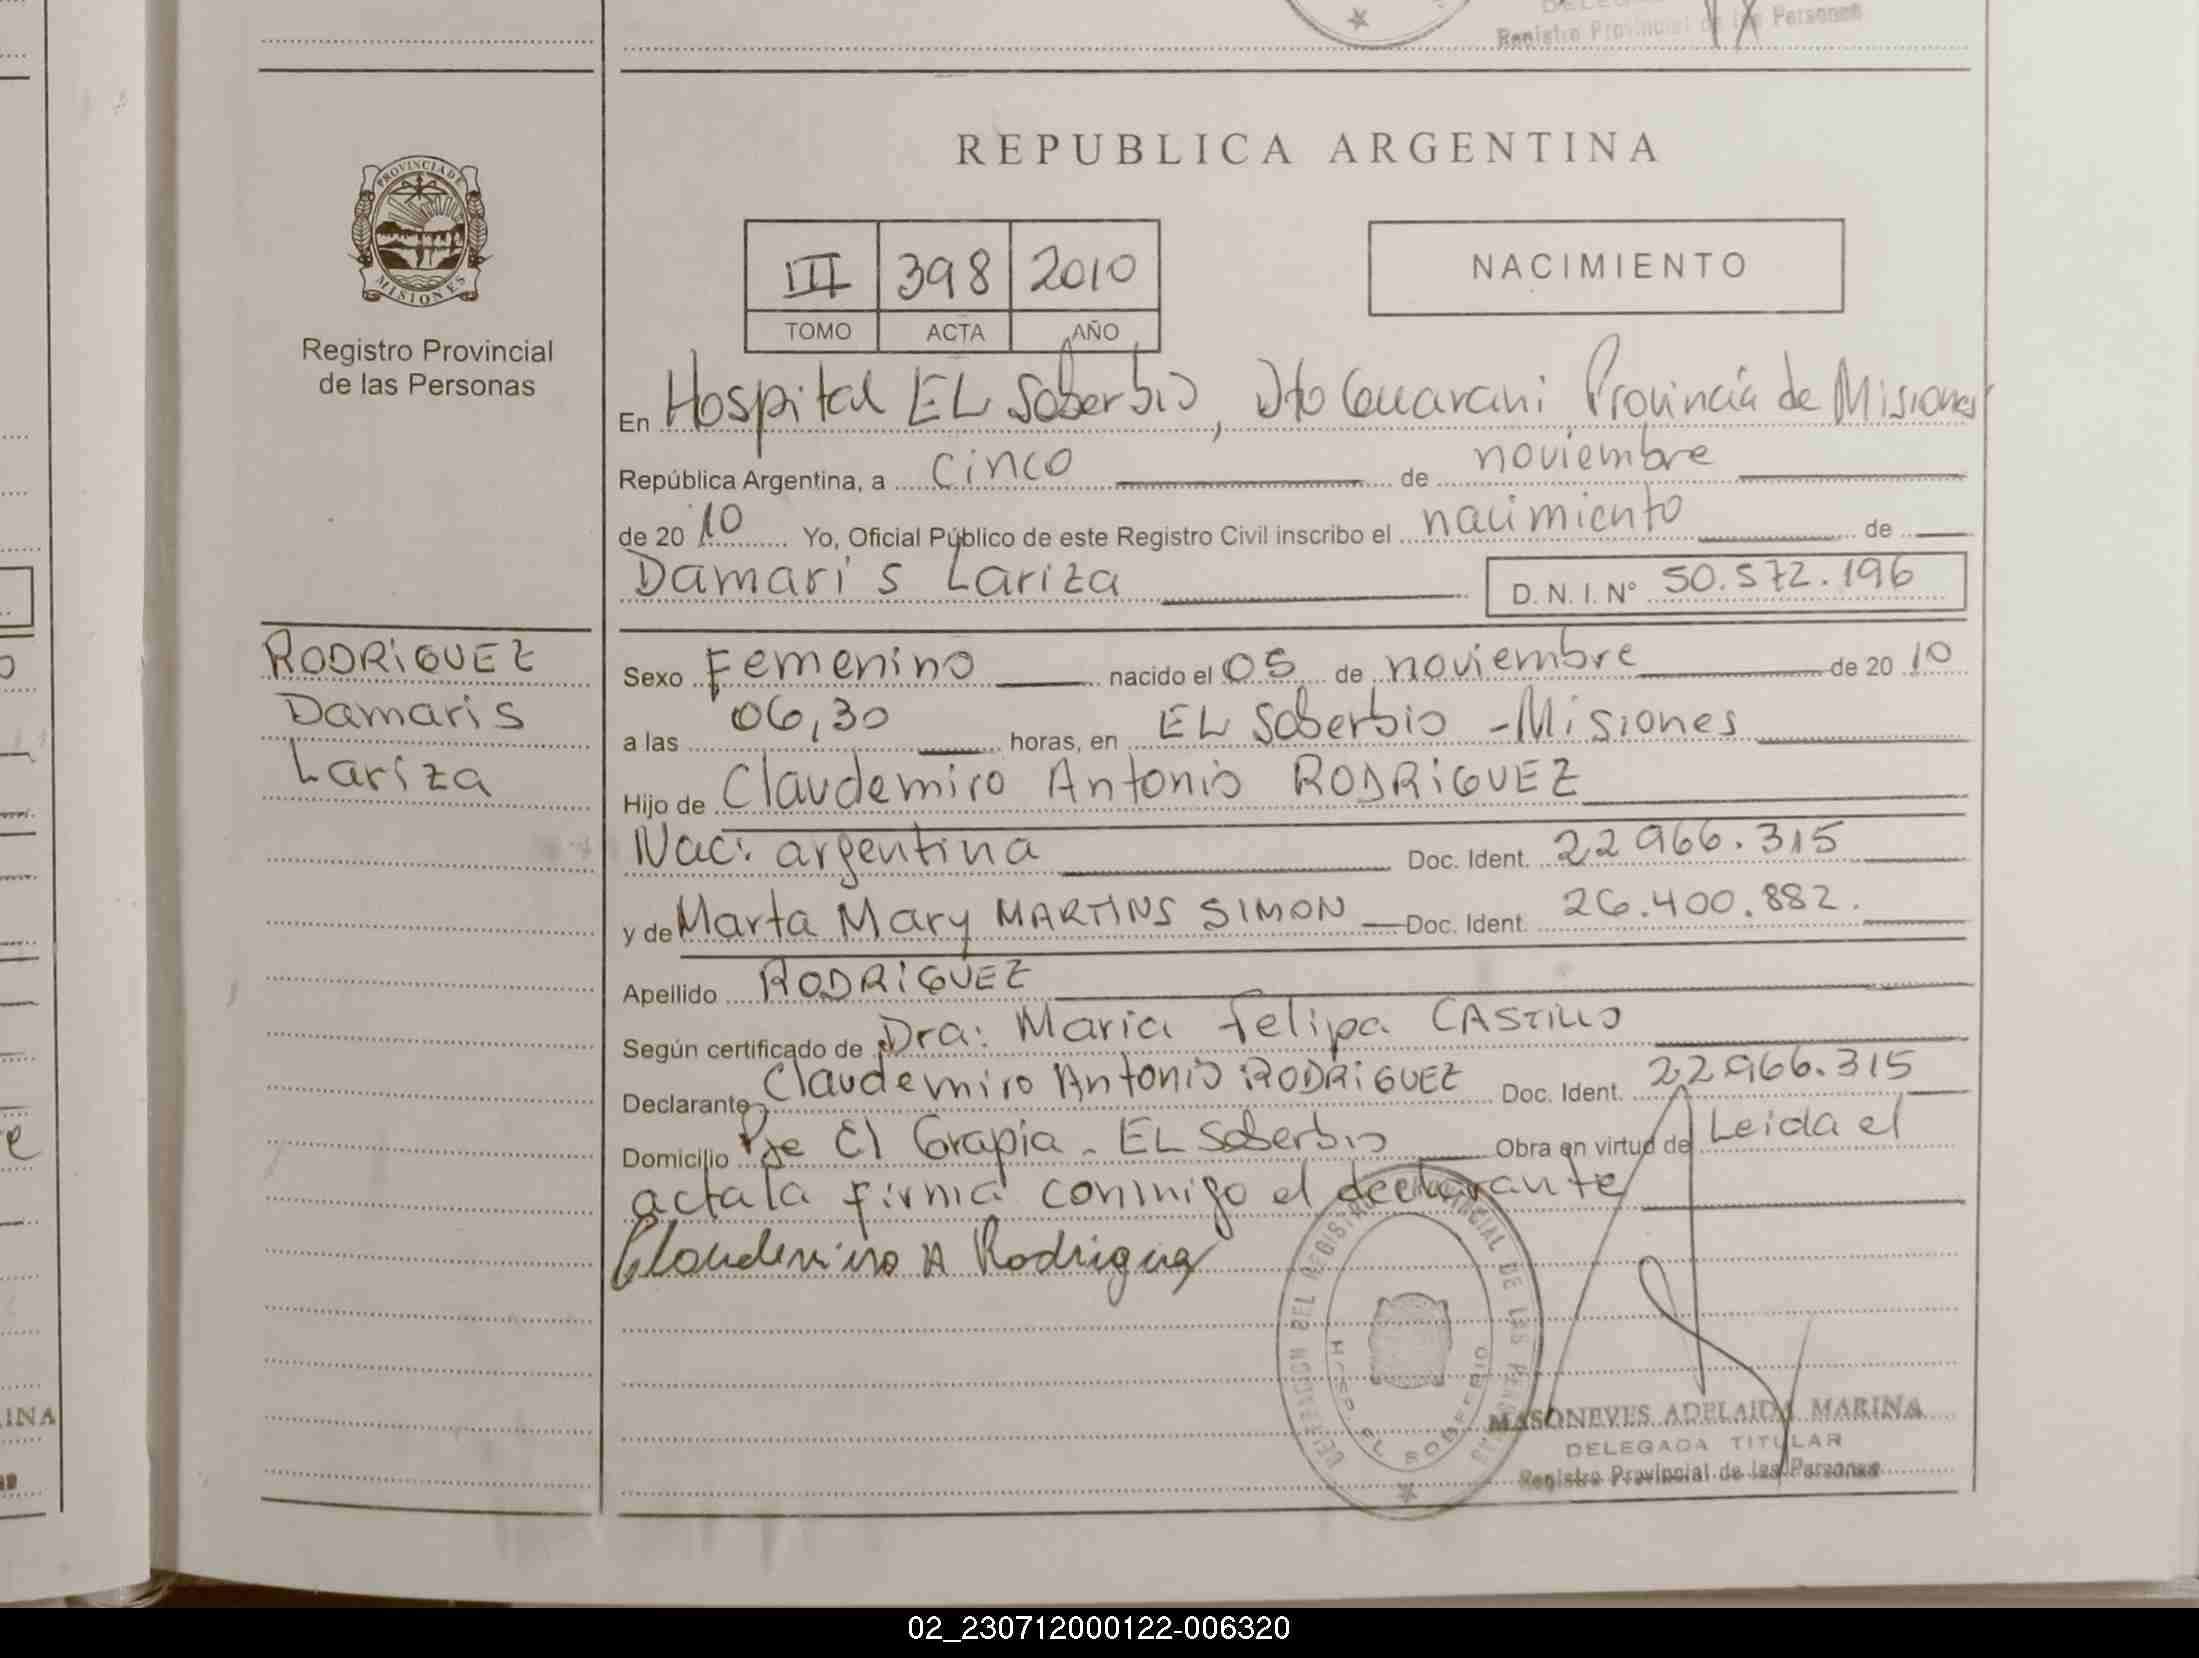 Registro Provincial de las Personas
REPUBLICA ARGENTINA
PROVINCIA DE
MISIONES
Registro Provincial
de las Personas
III 398 2010
TOMO ACTA AÑO
NACIMIENTO
En Hospital EL Soberbio, Dto Guarani Provincia de Misiones
República Argentina, a cinco de noviembre
de 20 10 Yo, Oficial Público de este Registro Civil inscribo el nacimiento de
Damaris Lariza D. N. I. N° 50.572.196
RODRIGUEZ
Damaris
Lariza
Sexo Femenino nacido el 05 de noviembre de 20 10
a las 06,30 horas, en EL Soberbio - Misiones
Hijo de Claudemiro Antonio RODRIGUEZ
Nac. argentina Doc. Ident. 22966.315
y de Marta Mary MARTINS SIMON Doc. Ident. 26.400.882.
Apellido RODRIGUEZ
Según certificado de Dra: Maria Felipa CASTILLO
Declarante Claudemiro Antonio RODRIGUEZ Doc. Ident. 22966.315
Domicilio Pje El Grapia - EL Soberbio Obra en virtud de Leida el
acta la firma conmigo el declarante
Claudemiro A Rodriguez
DELEGACION DEL REGISTRO PROVINCIAL DE LAS PERSONAS
HOSP. EL SOBERBIO
MASONEVES ADELAIDA MARINA
DELEGADA TITULAR
Registro Provincial de las Personas
INA
02_230712000122-006320